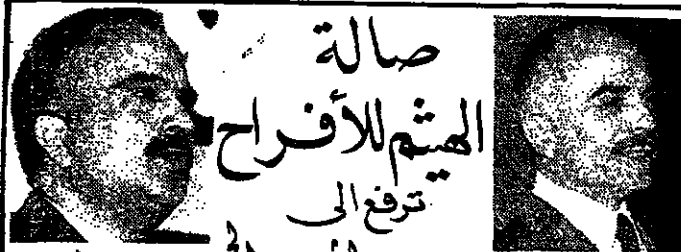 صالة
الهيثم للأفراح
ترفع الى